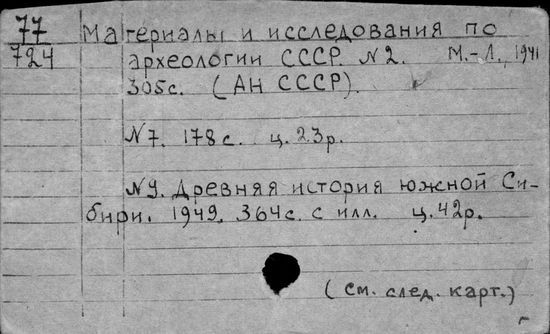 77 Материалы и исследования по
724 археологии СССР. №2. М.-Л., 1941
305с. (АН СССР).
№7. 178с. ц. 23р.
№9. Древняя история южной Си-
бири. 1949. 364с. с илл. ц. 42р.
(см. след. карт.)